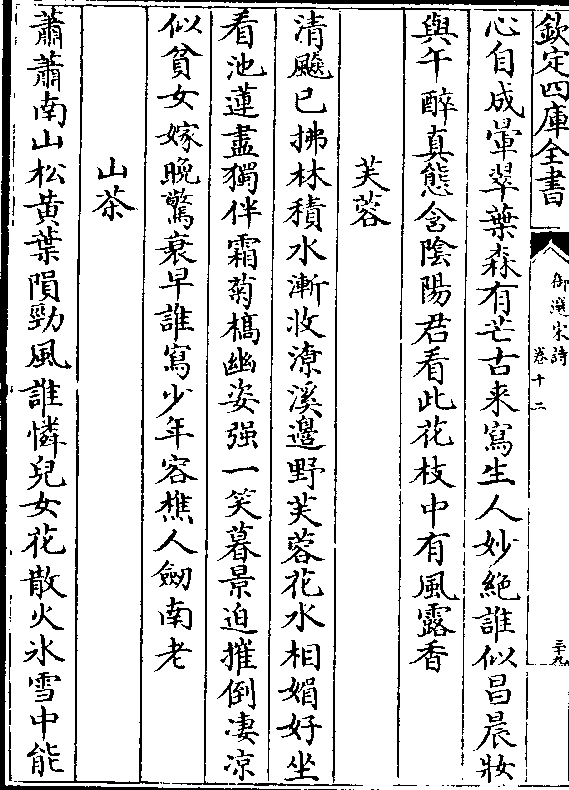 欽定四庫全書
御選宋詩
卷十二
三十九
心自成暈翠葉森有芒古来寫生人妙絶誰似昌晨妝
與午醉真態含陰陽君看此花枝中有風露香
芙蓉
清飈已拂林積水漸收潦溪邊野芙蓉花水相媚好坐
看池蓮盡獨伴霜菊槁幽姿强一笑暮景迫摧倒凄凉
似貧女嫁晚驚衰早誰寫少年容樵人劒南老
山茶
蕭蕭南山松黄葉隕勁風誰憐兒女花散火氷雪中能